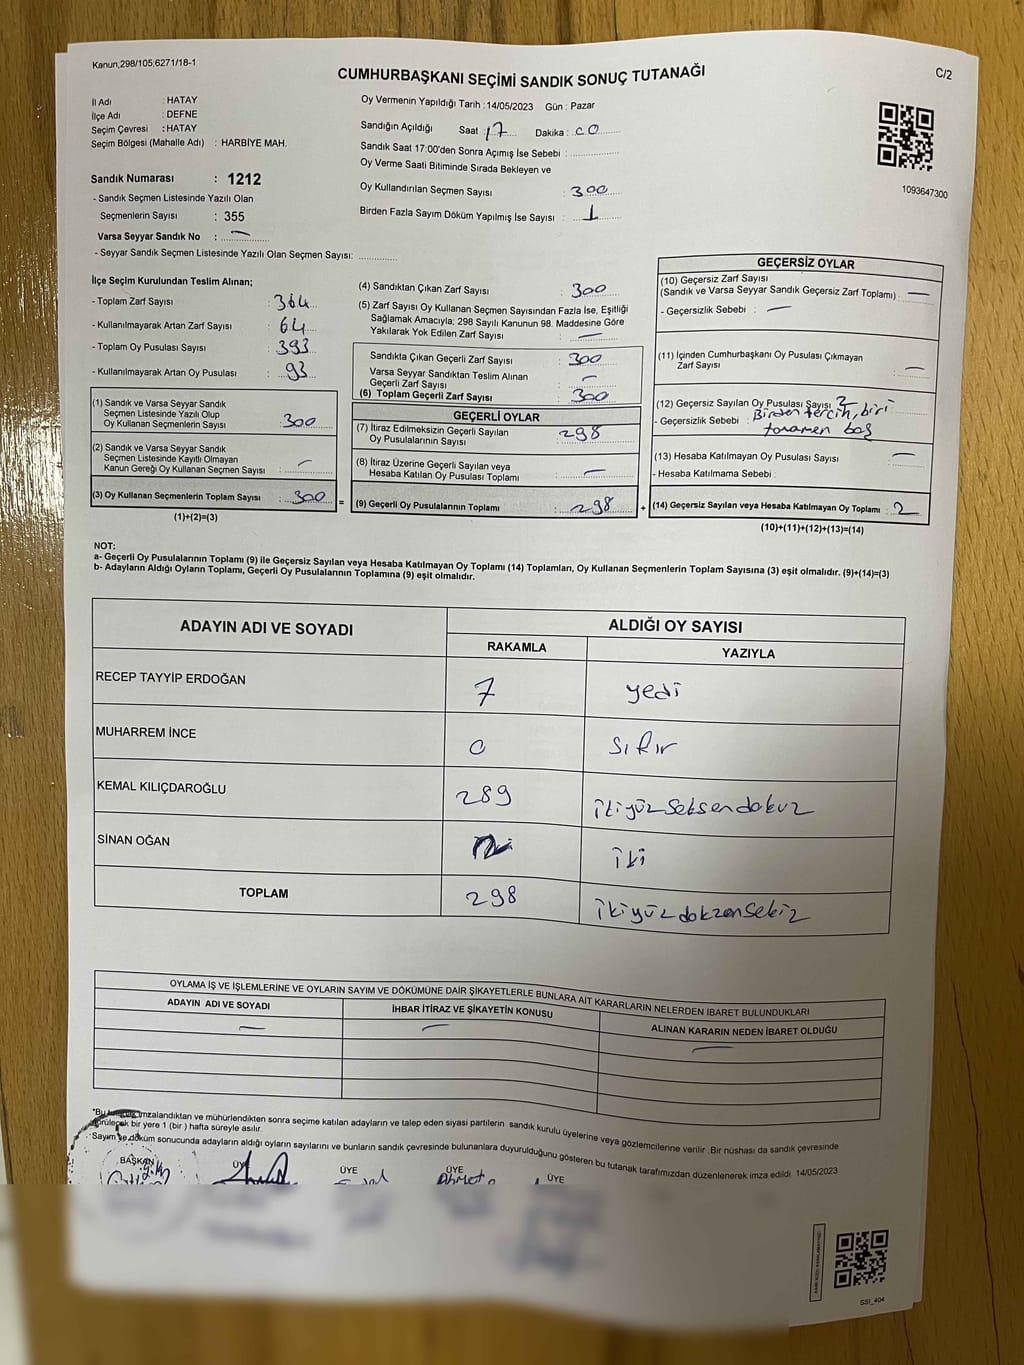 Kanun,298/105;6271/18-1
C/2
CUMHURBAŞKANI SEÇİMİ SANDIK SONUÇ TUTANAĞI
İl Adı : HATAY
İlçe Adı : DEFNE
Seçim Çevresi : HATAY
Seçim Bölgesi (Mahalle Adı) : HARBİYE MAH.
Oy Vermenin Yapıldığı Tarih :14/05/2023 Gün : Pazar
Sandığın Açıldığı Saat : 17 Dakika : 00
Sandık Saat 17:00'den Sonra Açımış İse Sebebi :
Oy Verme Saati Bitiminde Sırada Bekleyen ve
Oy Kullandırılan Seçmen Sayısı : 300
Birden Fazla Sayım Döküm Yapılmış İse Sayısı : 1
1093647300
Sandık Numarası : 1212
- Sandık Seçmen Listesinde Yazılı Olan
Seçmenlerin Sayısı : 355
Varsa Seyyar Sandık No : —
- Seyyar Sandık Seçmen Listesinde Yazılı Olan Seçmen Sayısı:
İlçe Seçim Kurulundan Teslim Alınan;
- Toplam Zarf Sayısı : 364
- Kullanılmayarak Artan Zarf Sayısı : 64
- Toplam Oy Pusulası Sayısı : 393
- Kullanılmayarak Artan Oy Pusulası : 93
(1) Sandık ve Varsa Seyyar Sandık
Seçmen Listesinde Yazılı Olup
Oy Kullanan Seçmenlerin Sayısı : 300
(2) Sandık ve Varsa Seyyar Sandık
Seçmen Listesinde Kayıtlı Olmayan
Kanun Gereği Oy Kullanan Seçmen Sayısı : —
(3) Oy Kullanan Seçmenlerin Toplam Sayısı : 300
(1)+(2)=(3)
(4) Sandıktan Çıkan Zarf Sayısı : 300
(5) Zarf Sayısı Oy Kullanan Seçmen Sayısından Fazla İse, Eşitliği
Sağlamak Amacıyla; 298 Sayılı Kanunun 98. Maddesine Göre
Yakılarak Yok Edilen Zarf Sayısı : —
Sandıkta Çıkan Geçerli Zarf Sayısı : 300
Varsa Seyyar Sandıktan Teslim Alınan
Geçerli Zarf Sayısı : —
(6) Toplam Geçerli Zarf Sayısı : 300
GEÇERLİ OYLAR
(7) İtiraz Edilmeksizin Geçerli Sayılan
Oy Pusulalarının Sayısı : 298
(8) İtiraz Üzerine Geçerli Sayılan veya
Hesaba Katılan Oy Pusulası Toplamı : —
= (9) Geçerli Oy Pusulalarının Toplamı : 298 +
GEÇERSİZ OYLAR
(10) Geçersiz Zarf Sayısı
(Sandık ve Varsa Seyyar Sandık Geçersiz Zarf Toplamı) : —
- Geçersizlik Sebebi : —
(11) İçinden Cumhurbaşkanı Oy Pusulası Çıkmayan
Zarf Sayısı : —
(12) Geçersiz Sayılan Oy Pusulası Sayısı : 2
- Geçersizlik Sebebi : Birden tercih, biri
tamamen boş
(13) Hesaba Katılmayan Oy Pusulası Sayısı : —
- Hesaba Katılmama Sebebi :
(14) Geçersiz Sayılan veya Hesaba Katılmayan Oy Toplamı : 2
(10)+(11)+(12)+(13)=(14)
NOT:
a- Geçerli Oy Pusulalarının Toplamı (9) ile Geçersiz Sayılan veya Hesaba Katılmayan Oy Toplamı (14) Toplamları, Oy Kullanan Seçmenlerin Toplam Sayısına (3) eşit olmalıdır. (9)+(14)=(3)
b- Adayların Aldığı Oyların Toplamı, Geçerli Oy Pusulalarının Toplamına (9) eşit olmalıdır.
ADAYIN ADI VE SOYADI
ALDIĞI OY SAYISI
RAKAMLA YAZIYLA
RECEP TAYYİP ERDOĞAN 7 yedi
MUHARREM İNCE 0 sıfır
KEMAL KILIÇDAROĞLU 289 ikiyüzseksendokuz
SİNAN OĞAN iki
TOPLAM 298 ikiyüzdokzansekiz
OYLAMA İŞ VE İŞLEMLERİNE VE OYLARIN SAYIM VE DÖKÜMÜNE DAİR ŞİKAYETLERLE BUNLARA AİT KARARLARIN NELERDEN İBARET BULUNDUKLARI
ADAYIN ADI VE SOYADI İHBAR İTİRAZ VE ŞİKAYETİN KONUSU ALINAN KARARIN NEDEN İBARET OLDUĞU
— — —
*Bu imzalandıktan ve mühürlendikten sonra seçime katılan adayların ve talep eden siyasi partilerin sandık kurulu üyelerine veya gözlemcilerine verilir .Bir nüshası da sandık çevresinde
görülecek bir yere 1 (bir ) hafta süreyle asılır.
*Sayım ve döküm sonucunda adayların aldığı oyların sayılarını ve bunların sandık çevresinde bulunanlara duyurulduğunu gösteren bu tutanak tarafımızdan düzenlenerek imza edildi. 14/05/2023
BAŞKAN ÜYE ÜYE ÜYE ÜYE
Ahmet
SSI_404